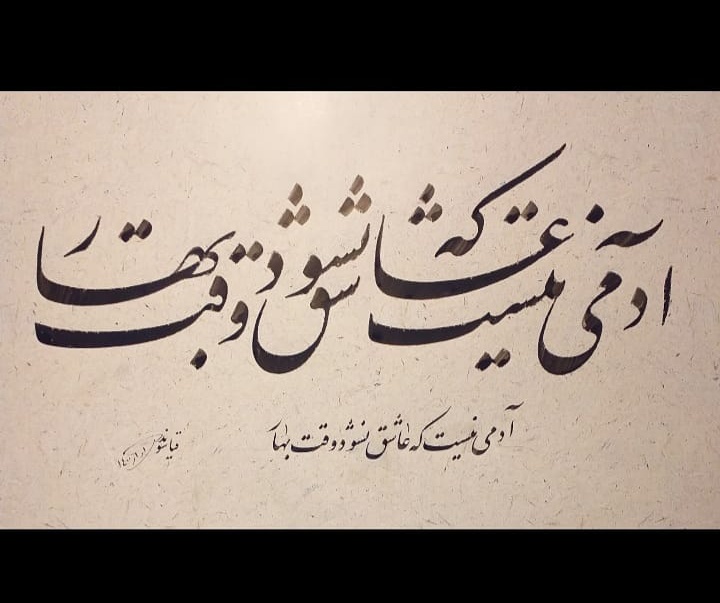 آدمی نیست که عاشق نشود وقت بهار
آدمی نیست که عاشق نشود وقت بهار